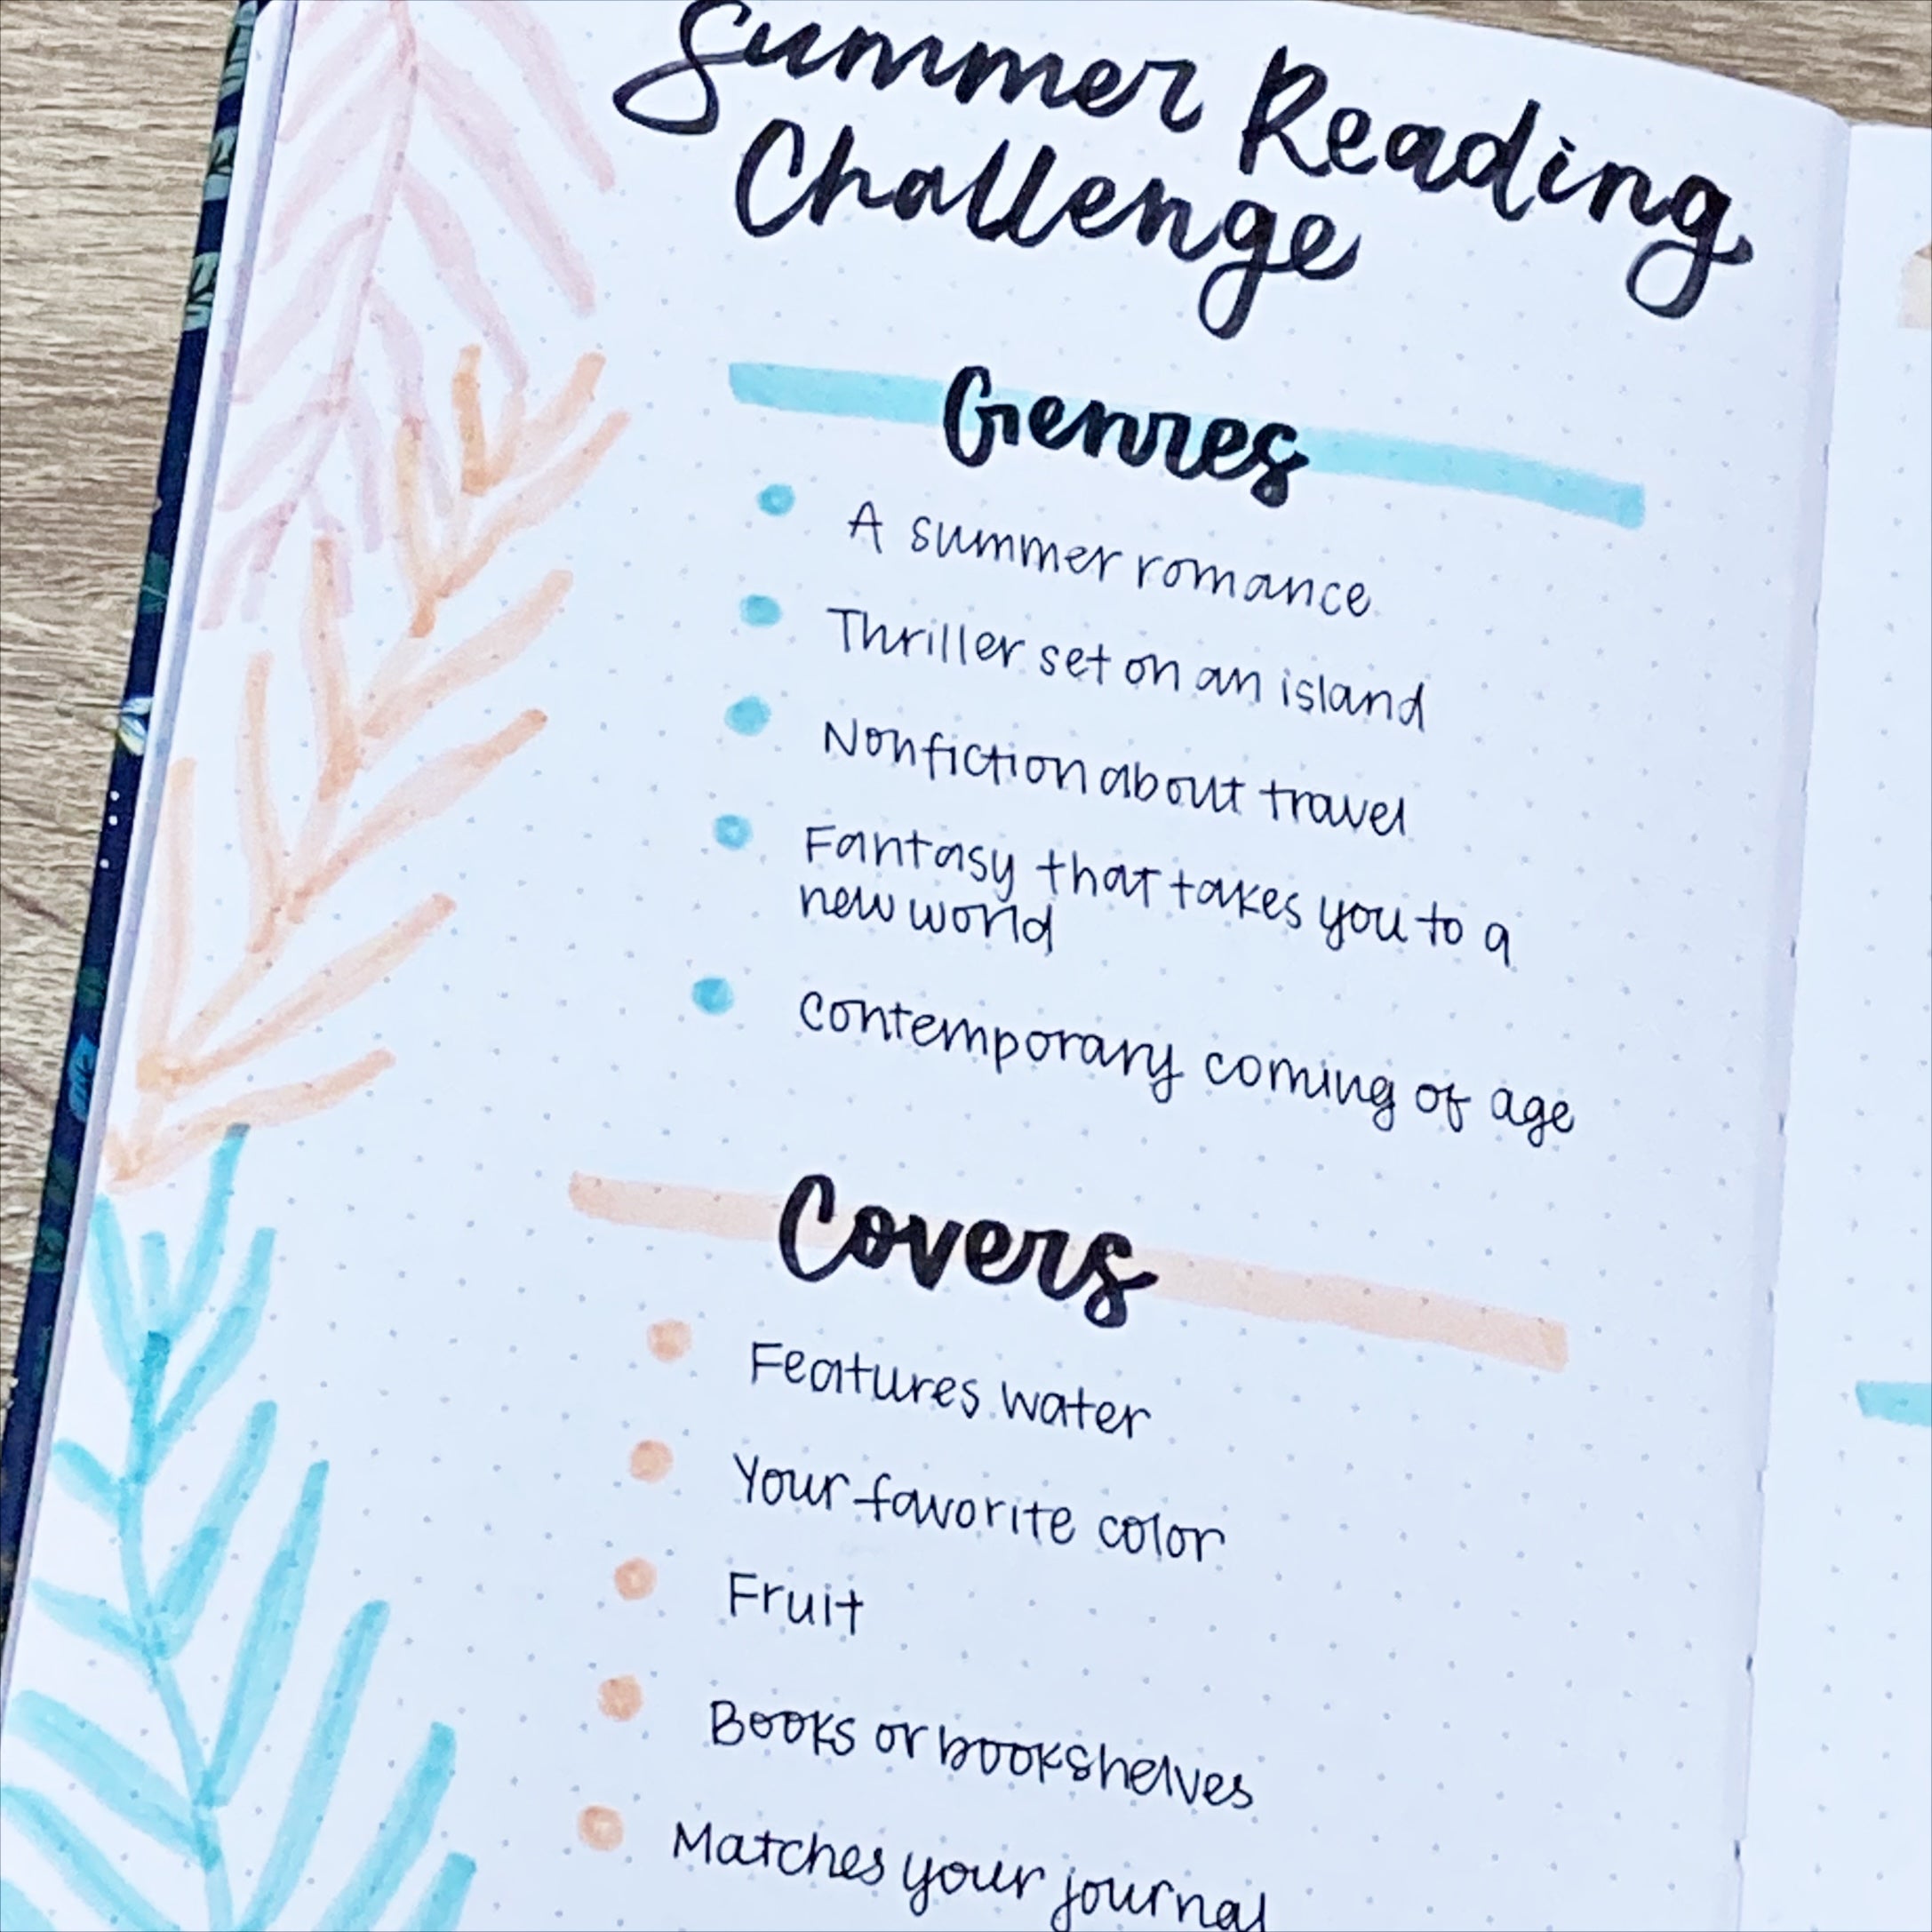 Summer Reading
Challenge
Genres
A summer romance
Thriller set on an island
Nonfiction about travel
Fantasy that takes you to a
new world
contemporary coming of age
Covers
Features water
Your favorite color
Fruit
Books or bookshelves
Matches your journal